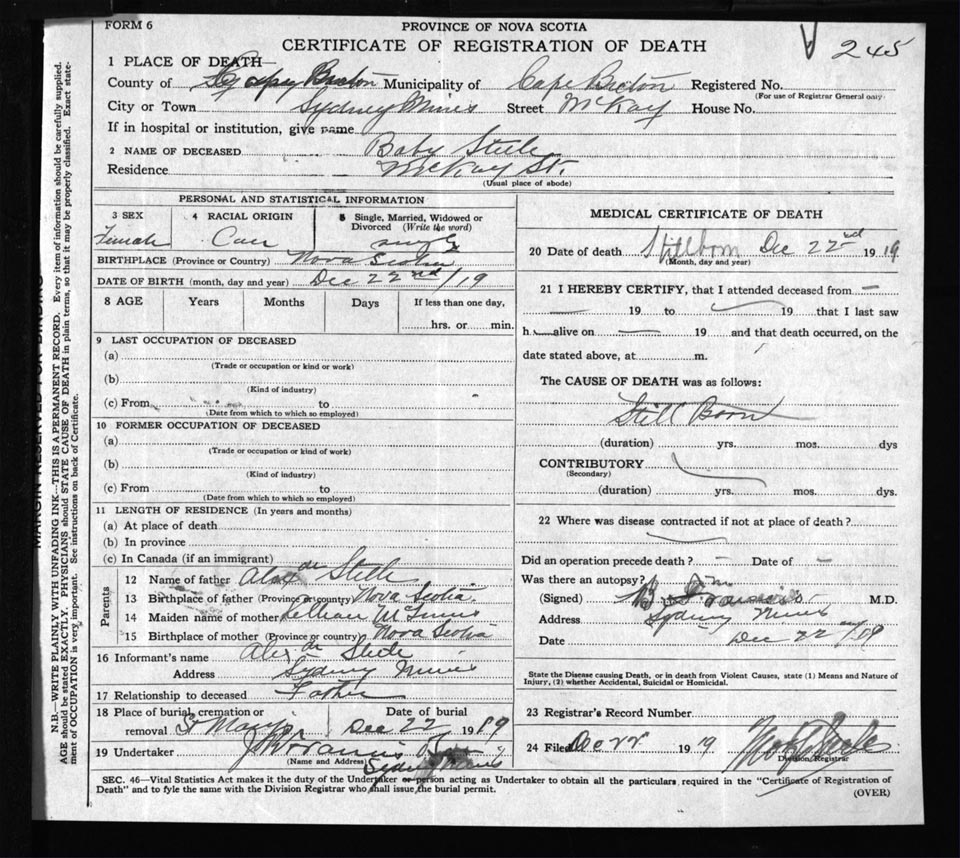 FORM 6
PROVINCE OF NOVA SCOTIA
245
CERTIFICATE OF REGISTRATION OF DEATH
1 PLACE OF DEATH
County of Breton Municipality of Cape Breton Registered No.
(For use of Registrar General only)
City or Town Sydney Mines Street McKay House No.
If in hospital or institution, give name
2 NAME OF DECEASED Baby Steele
Residence McKay St.
(Usual place of abode)
PERSONAL AND STATISTICAL INFORMATION
3 SEX 4 RACIAL ORIGIN 5 Single, Married, Widowed or Divorced (Write the word)
Female Cau single
BIRTHPLACE (Province or Country) Nova Scotia
DATE OF BIRTH (month, day and year) Dec 22nd/19
8 AGE Years Months Days If less than one day,
hrs. or min.
9 LAST OCCUPATION OF DECEASED
(a)
(Trade or occupation or kind or work)
(b)
(Kind of industry)
(c) From to
(Date from which to which so employed)
10 FORMER OCCUPATION OF DECEASED
(a)
(Trade or occupation or kind of work)
(b)
(Kind of industry)
(c) From to
(Date from which to which so employed)
11 LENGTH OF RESIDENCE (In years and months)
(a) At place of death
(b) In province
(c) In Canada (if an immigrant)
Parents
12 Name of father Alexdr Steele
13 Birthplace of father (Province or country) Nova Scotia.
14 Maiden name of mother McInnis
15 Birthplace of mother (Province or country) Nova Scotia
16 Informant's name Alexdr Steele
Address Sydney Mines
17 Relationship to deceased Father
18 Place of burial, cremation or removal Date of burial
Dec 22 1919
19 Undertaker
(Name and Address) Sydney Mines
MEDICAL CERTIFICATE OF DEATH
20 Date of death Stillborn Dec 22nd 1919
(Month, day and year)
21 I HEREBY CERTIFY, that I attended deceased from —
— 19 to 19 that I last saw
h alive on — 19 and that death occurred, on the
date stated above, at m.
The CAUSE OF DEATH was as follows:
Still Born
(duration) yrs. mos. dys
CONTRIBUTORY
(Secondary)
(duration) yrs. mos. dys.
22 Where was disease contracted if not at place of death?
Did an operation precede death? – Date of –
Was there an autopsy?
(Signed) M.D.
Address Sydney Mines
Date Dec 22
State the Disease causing Death, or in death from Violent Causes, state (1) Means and Nature of
Injury, (2) whether Accidental, Suicidal or Homicidal.
23 Registrar's Record Number
24 Filed Dec 22 1919
Division Registrar
SEC. 46—Vital Statistics Act makes it the duty of the Undertaker or person acting as Undertaker to obtain all the particulars required in the "Certificate of Registration of
Death" and to fyle the same with the Division Registrar who shall issue the burial permit.
(OVER)
MARGIN RESERVED FOR BINDING
N.B.—WRITE PLAINLY WITH UNFADING INK—THIS IS A PERMANENT RECORD. Every item of information should be carefully supplied.
AGE should be stated EXACTLY. PHYSICIANS should STATE CAUSE OF DEATH in plain terms, so that it may be properly classified. Exact state-
ment of OCCUPATION is very important. See instructions on back of Certificate.